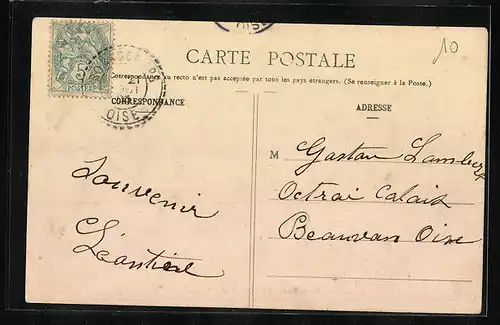 10
CARTE POSTALE
Correspondance au recto n'est pas acceptée par tous les pays étrangers. (Se renseigner à la Poste.)
CORRESPONDANCE
ADRESSE
5
POSTES
21
OISE
OISE
M Gaston Lambert
Octroi Calais
Beauvais Oise
Souvenir
Léontine